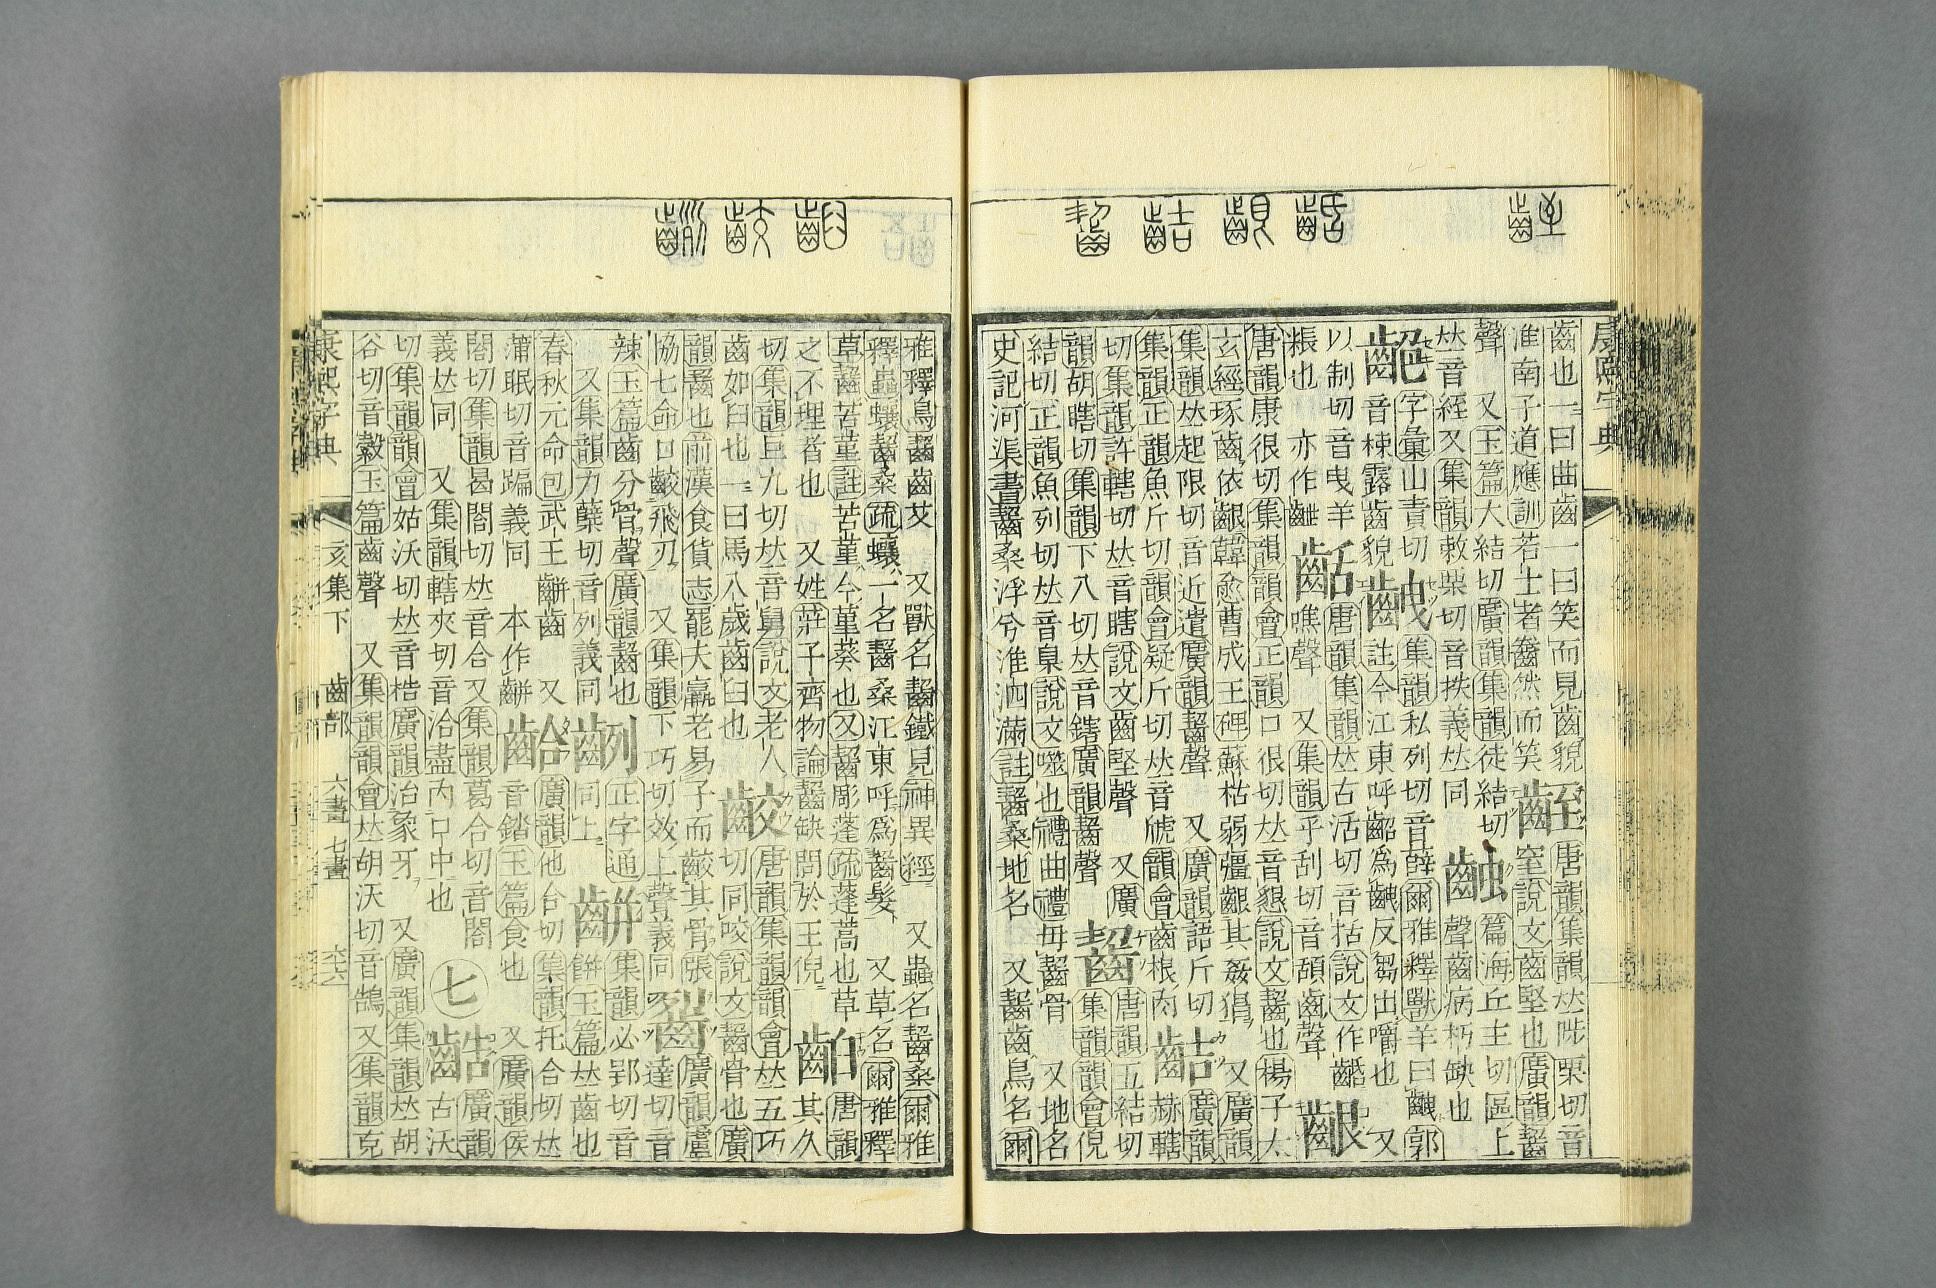 康熙字典
齒也一曰曲齒一曰笑而見齒貌
齒至
唐韻集韻𠀤陟栗切音
淮南子道應訓若士者齤然而笑
窒說文齒堅也廣韻齧
聲 又玉篇大結切廣韻集韻徒結切
篇海丘主切區上
𠀤音絰又集韻敕栗切音抶義𠀤同
聲齒病朽缺也
字彙山責切
音棟露齒貌
齥
集韻私列切音薛爾雅釋獸羊曰齥郭
註今江東呼齝爲齥反芻出嚼也 又
以制切音曳羊
粻也 亦作齛
唐韻集韻𠀤古活切音括說文作𪘆
噍聲 又集韻乎刮切音頢齒聲
齦
唐韻康很切集韻韻會正韻口很切𠀤音懇說文齧也楊子太
玄經琢齒依齦韓愈曹成王碑蘇枯弱彊齦其姦猖 又廣韻
集韻𠀤起限切音近遺廣韻齧聲 又廣韻語斤切
集韻正韻魚斤切韻會疑斤切𠀤音虓韻會齒根肉
齒吉
廣韻
赫轄
切集韻許轄切𠀤音瞎說文齒堅聲 又廣
韻胡瞎切集韻下八切𠀤音鎋廣韻齧聲
齧
唐韻五結切
集韻韻會倪
結切正韻魚列切𠀤音臬說文噬也禮曲禮毋齧骨 又地名
史記河渠書齧桑浮兮淮泗滿註齧桑地名 又齧齒鳥名爾
雅釋鳥齧齒艾 又獸名齧鐵見神異經 又蟲名齧桑爾雅
釋蟲蠰齧桑疏蠰一名齧桑江東呼爲齒髮 又草名爾雅釋
草齧苦堇註苦堇今堇葵也又齧彫蓬疏蓬蒿也草
之不理者也 又姓莊子齊物論齧缺問於王倪
齨
唐韻
其久
切集韻巨九切𠀤音舅說文老人
齒如臼也一曰馬八歲齒臼也
齩
唐韻集韻韻會𠀤五巧
切同咬說文齧骨也廣
韻齧也前漢食貨志罷夫羸老易子而齩其骨張
協七命口齩飛刃 又集韻下巧切效上聲義同
廣韻盧
達切音
辣玉篇齒分骨聲廣韻齧也
又集韻力櫱切音列義同
同上
正字通
齒幷
集韻必郢切音
餠玉篇𠀤齒也
春秋元命包武王齒幷齒 又
蒲眠切音蹁義同 本作齒幷
齒合
廣韻他合切集韻托合切𠀤
音錔玉篇食也 又廣韻侯
閤切集韻曷閤切𠀤音合又集韻葛合切音閤
義𠀤同 又集韻轄夾切音洽盡內口中也
七
齒告
廣韻
古沃
切集韻韻會姑沃切𠀤音梏廣韻治象牙 又廣韻集韻𠀤胡
谷切音縠玉篇齒聲 又集韻韻會𠀤胡沃切音鵠又集韻克
康熙字典
亥集下 齒部 六畫 七畫